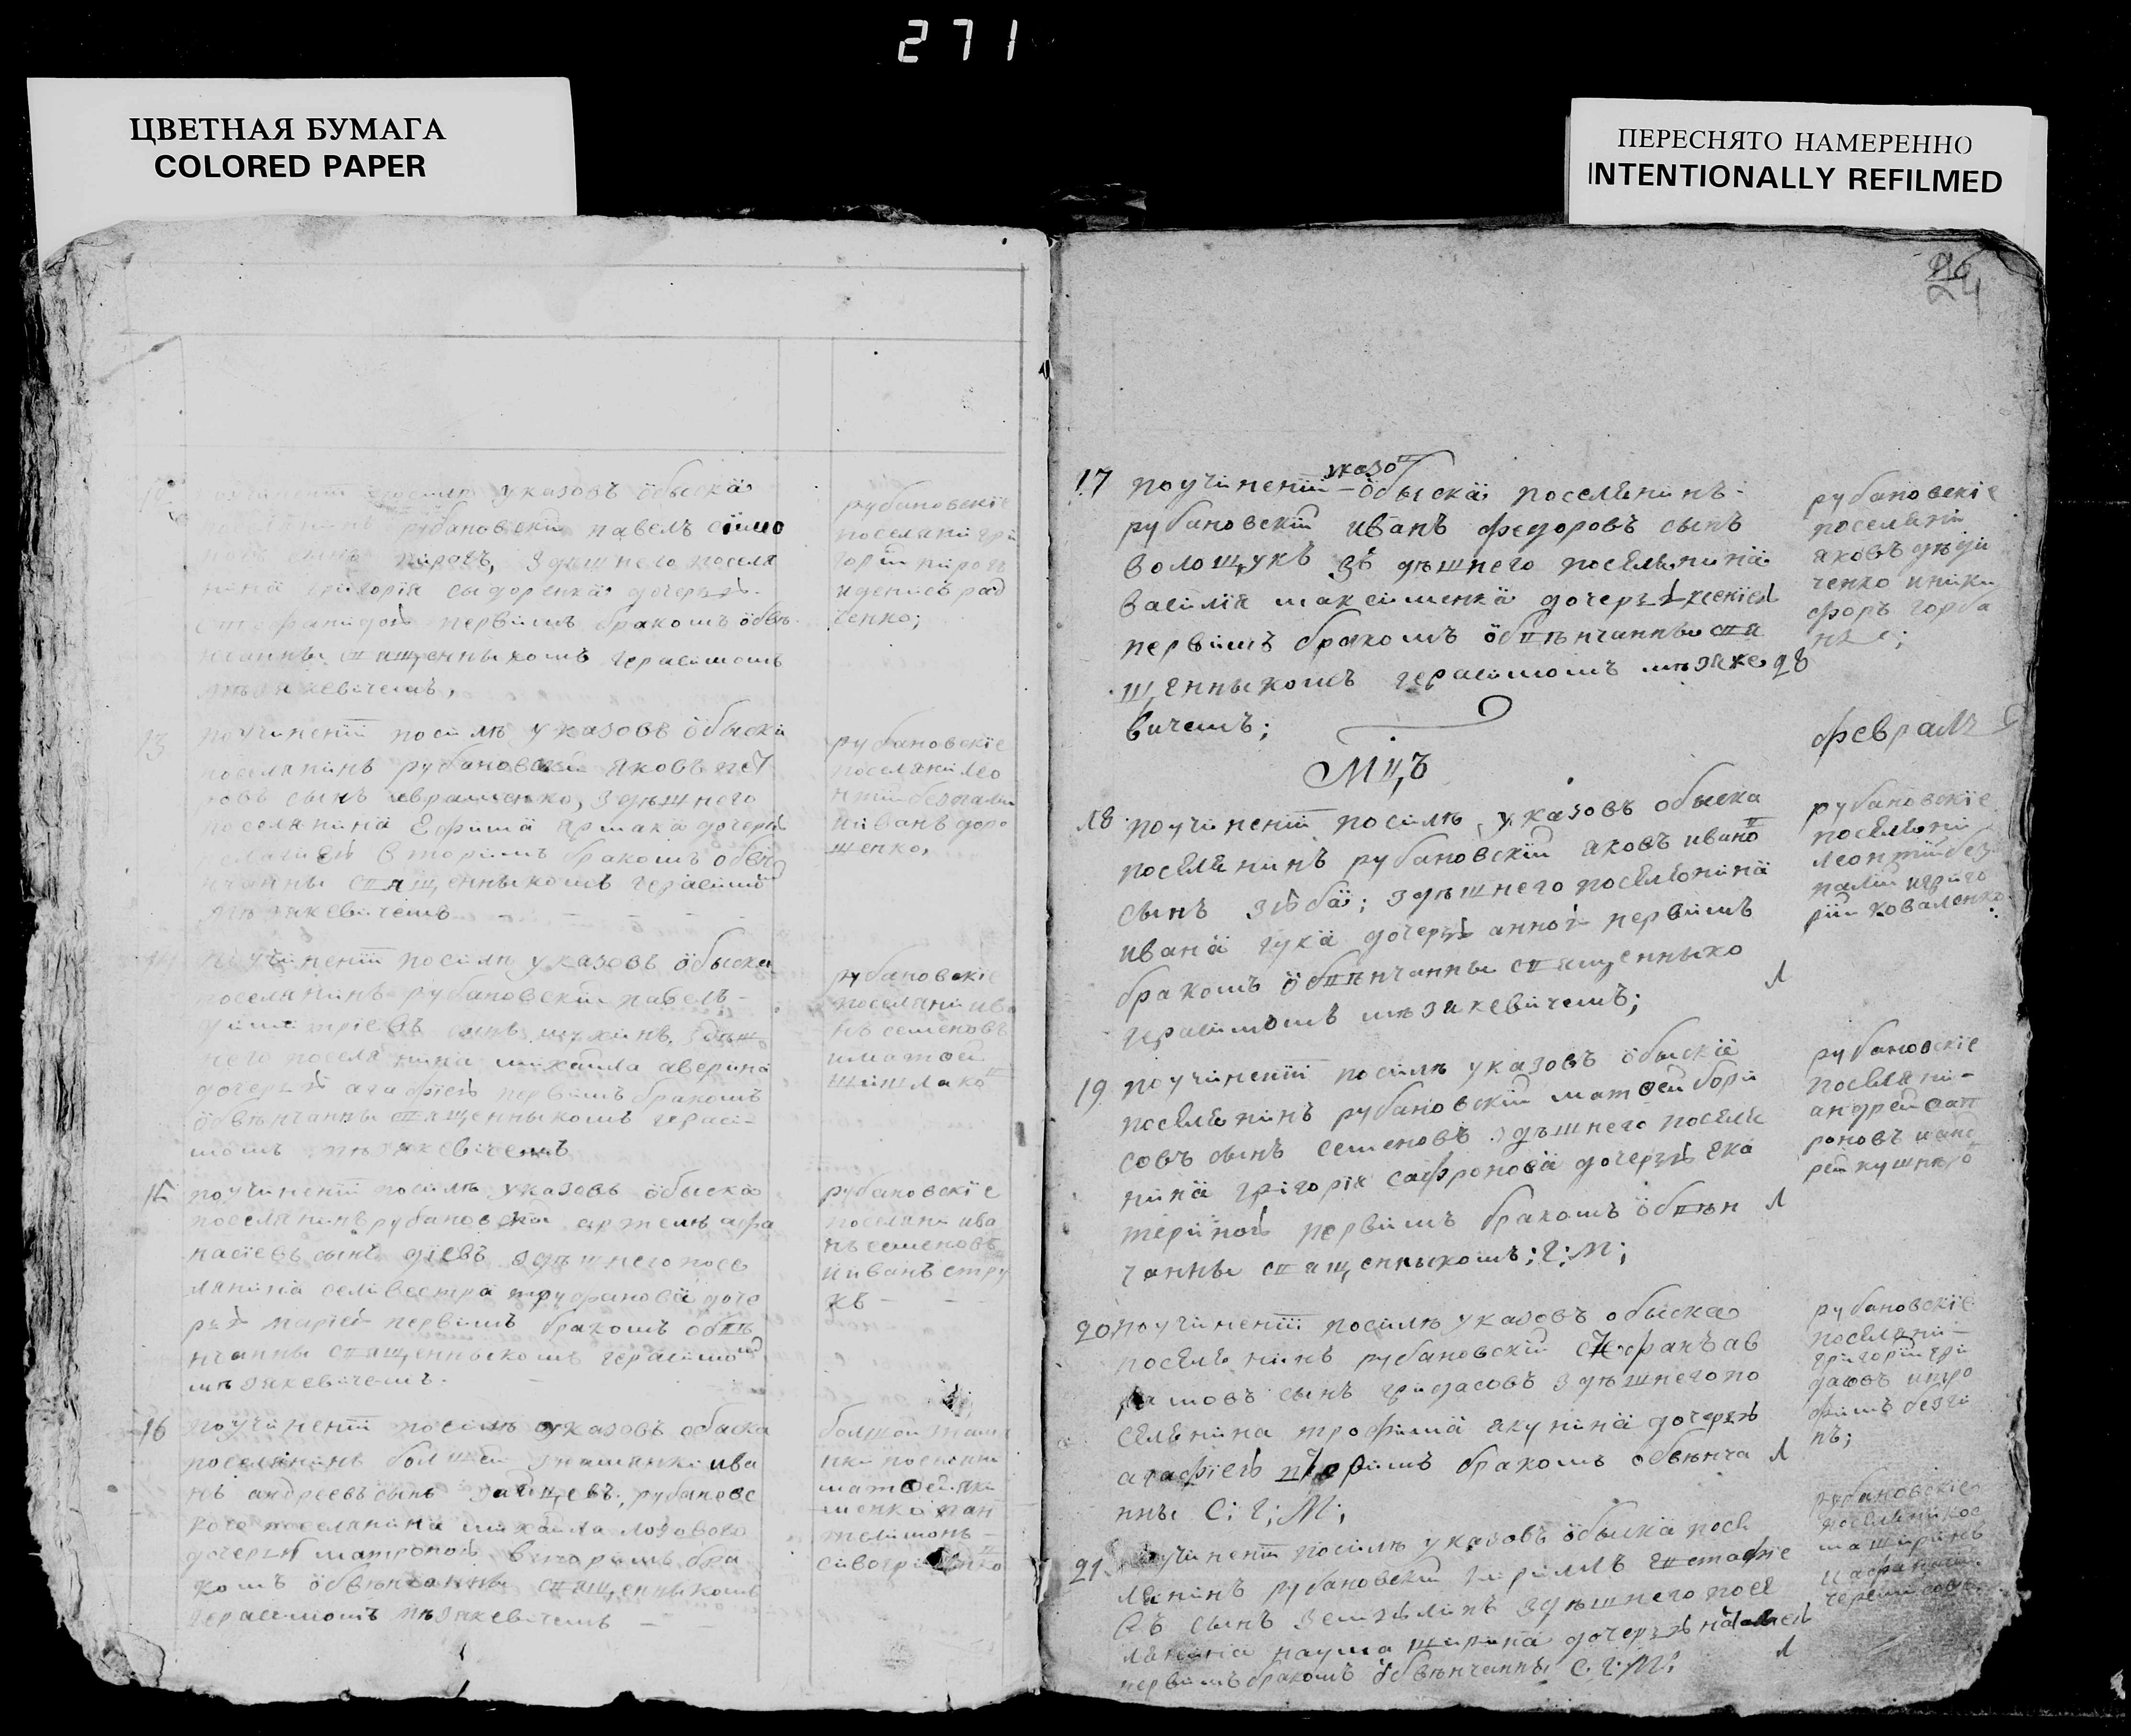 271
ЦВЕТНАЯ БУМАГА
COLORED PAPER
ПЕРЕСНЯТО НАМЕРЕННО
INTENTIONALLY REFILMED
24
указовъ обыска
рубановский павелъ симо
пирогъ, здѣшнего поселя
нина григория сыдоренка дочерью
первимъ бракомъ обвѣ
нчанны священныкомъ герасимомъ
рубановские
поселяни гри
горий пирогъ
и денисъ рад
ченко;
13
поучинении посилѣ указовъ обыска
поселянинъ рубановский яковъ пет
ровъ сынъ авраменко, здѣшнего
поселянина ефима ярмака дочерью
пелагией вторимъ бракомъ обвѣ
нчанны священныкомъ герасимо
мѣзякевичемъ
рубановские
поселяни лео
нтий безпали
и иванъ доро
шенко,
поучинении посилѣ указовъ обыска
поселянинъ рубановский павелъ
димитриевъ сынъ здѣш
него поселянина михайла аверина
дочерью агафией первимъ бракомъ
обвѣнчанны священныкомъ гераси
момъ мѣзякевичемъ
рубановские
поселяни ива
нъ семеновъ
и матѳей
шишлако
15
поучинении посилѣ указовъ обыска
поселянинъ рубановский афа
насиевъ сынъ здѣшнего посе
лянина селивестра труфанова доче
рью марией первимъ бракомъ обвѣ
нчанны священныкомъ герасимо
мѣзякевичемъ.
рубановские
поселяни ива
нъ семеновъ
и иванъ стру
къ
16
поучинении посилѣ указовъ обыска
поселянинъ болшей знаменки ива
нъ андреевъ сынъ зайцевъ, рубановс
кого поселянина михайла лозового
дочерью матроной вторимъ бра
комъ обвѣнчанны священныкомъ
герасимомъ мѣзякевичемъ
болшой знаме
нки поселяни
матѳей
пан
телимонъ
17 поучинении указо обыска поселянинъ
рубановский иванъ федоровъ сынъ
волощукъ здѣшнего поселянина
василия максименка дочерью ксенией
первимъ бракомъ обвѣнчанны свя
щенныкомъ герасимомъ мѣзяке
вичемъ;
рубановские
поселяни
яковъ дѣди
ченко и ники
форъ горба
нь;
Мцъ
февраль
18 поучинении посилѣ указовъ обыска
поселянинъ рубановский яковъ ивано
сынъ зѣба; здѣшнего поселянина
ивана гука дочерью анной первимъ
бракомъ обвѣнчанны священныко
герасимомъ мѣзякевичемъ;
рубановские
поселяни
леонтий без
палий и григо
рий коваленко.
19 поучинении посилѣ указовъ обыска
поселянинъ рубановский матѳей бори
совъ сынъ семеновъ здѣшнего поселя
нина григория сафронова дочерью ека
териной первимъ бракомъ обвѣн
чанны священныкомъ; г; м;
рубановские
поселяни-
андрей сап
роновъ и анд
рей кушнѣро
20 поучинении посилѣ указовъ обыска
поселянинъ рубановский стефанъ ав
рамовъ сынъ гридасовъ здѣшнего по
селянина трофима якунина дочерью
агафией вторимъ бракомъ обвѣнча
нны с; г; м;
рубановские
поселяни-
григорий гри
дасовъ и тро
фимъ безги
нъ;
21 поучинении посилѣ указовъ обыска посе
лянинъ рубановский кирилъ евстафие
въ сынъ здѣшнего посе
лянина наума ширина дочерью
первимъ бракомъ обвѣнчанны с: г: м:
рубановские